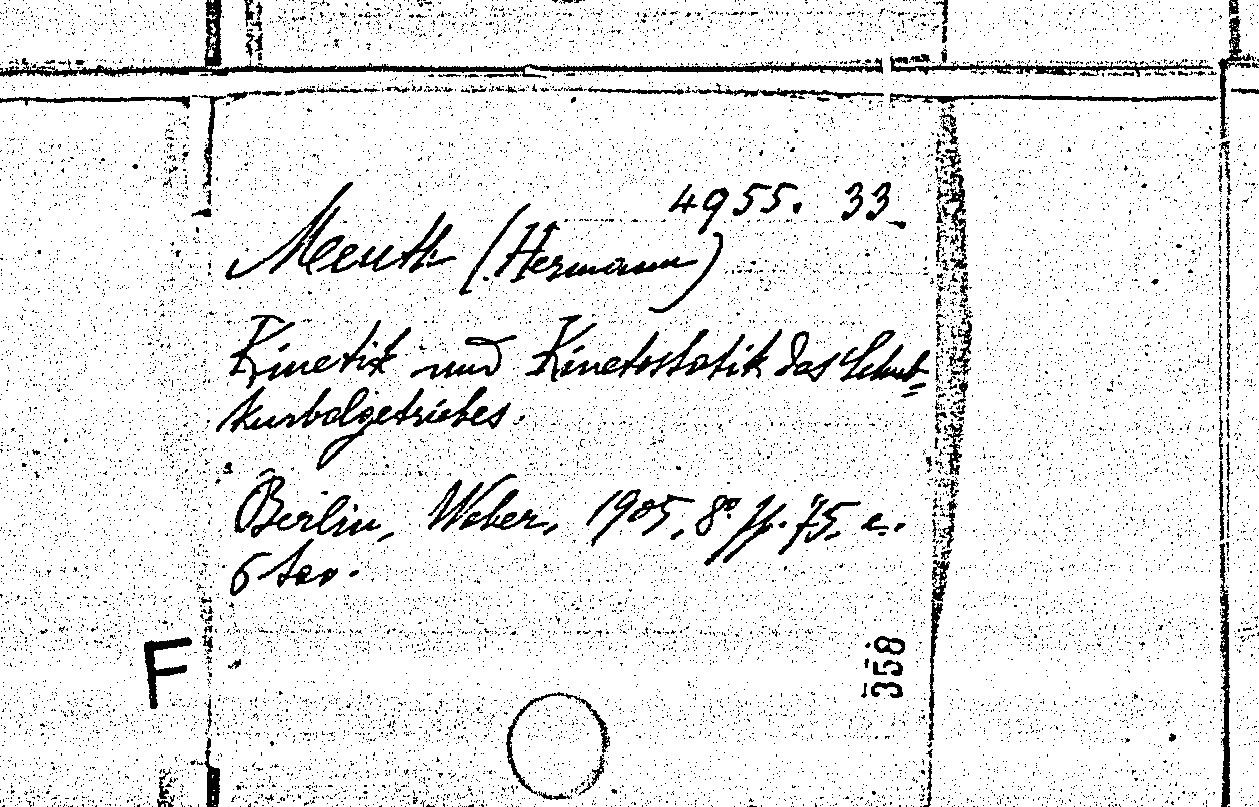 4955. 33
Meuth (Hermann)
Kinetik und Kinetostatik des Schub=
kurbelgetriebes.
Berlin, Weber, 1905. 8º. pp. 75. e.
6 tav.
F
358